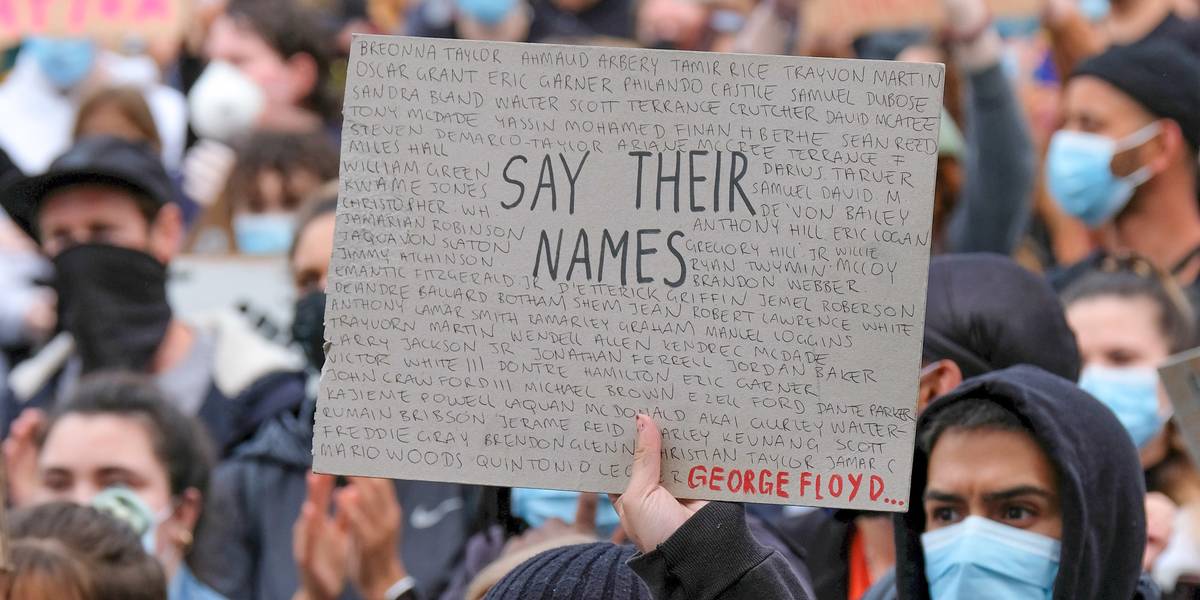 BREONNA TAYLOR AHMAUD ARBERY TAMIR RICE TRAYVON MARTIN
OSCAR GRANT ERIC GARNER PHILANDO CASTILE SAMUEL DUBOSE
SANDRA BLAND WALTER SCOTT TERRANCE CRUTCHER DAVID MCATEE
TONY MCDADE YASSIN MOHAMED FINAN H BERHE SEAN REED
STEVEN DEMARCO-TAYLOR ARIANE MCCREE TERRANCE F
MILES HALL
WILLIAM GREEN DARIUS TARVER
KWAME JONES SAMUEL DAVID M
CHRISTOPHER WH DE'VON BAILEY
SAY THEIR
JAMARIAN ROBINSON ANTHONY HILL ERIC LOGAN
JAQUAVON SLATON GREGORY HILL JR WILLIE
JIMMY ATCHINSON RYAN TWYMIN MCCOY
NAMES
BRANDON WEBBER
EMANTIC FITZGERALD JR D'ETTERICK GRIFFIN JEMEL ROBERSON
DEANDRE BALLARD BOTHAM SHEM JEAN ROBERT LAWRENCE WHITE
ANTHONY LAMAR SMITH RAMARLEY GRAHAM MANUEL LOGGINS
TRAYVORN MARTIN WENDELL ALLEN KENDREC MCDADE
LARRY JACKSON JR JONATHAN FERRELL JORDAN BAKER
VICTOR WHITE III DONTRE HAMILTON ERIC GARNER
JOHN CRAWFORD III MICHAEL BROWN EZELL FORD DANTE PARKER
KAJIEME POWELL LAQUAN MCDONALD AKAI GURLEY WALTER
RUMAIN BRIBSON JERAME REID KEVNANG SCOTT
FREDDIE GRAY BRENDON GLENN CHRISTIAN TAYLOR JAMAR C
MARIO WOODS QUINTONIO
GEORGE FLOYD...